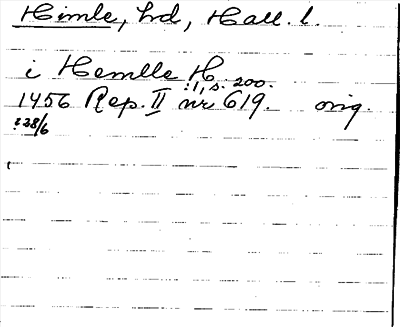 Himle, hd, Hall. l.
i Hemlle H
:1, s. 200.
1456 Rep. II nr 619. orig.
28/6